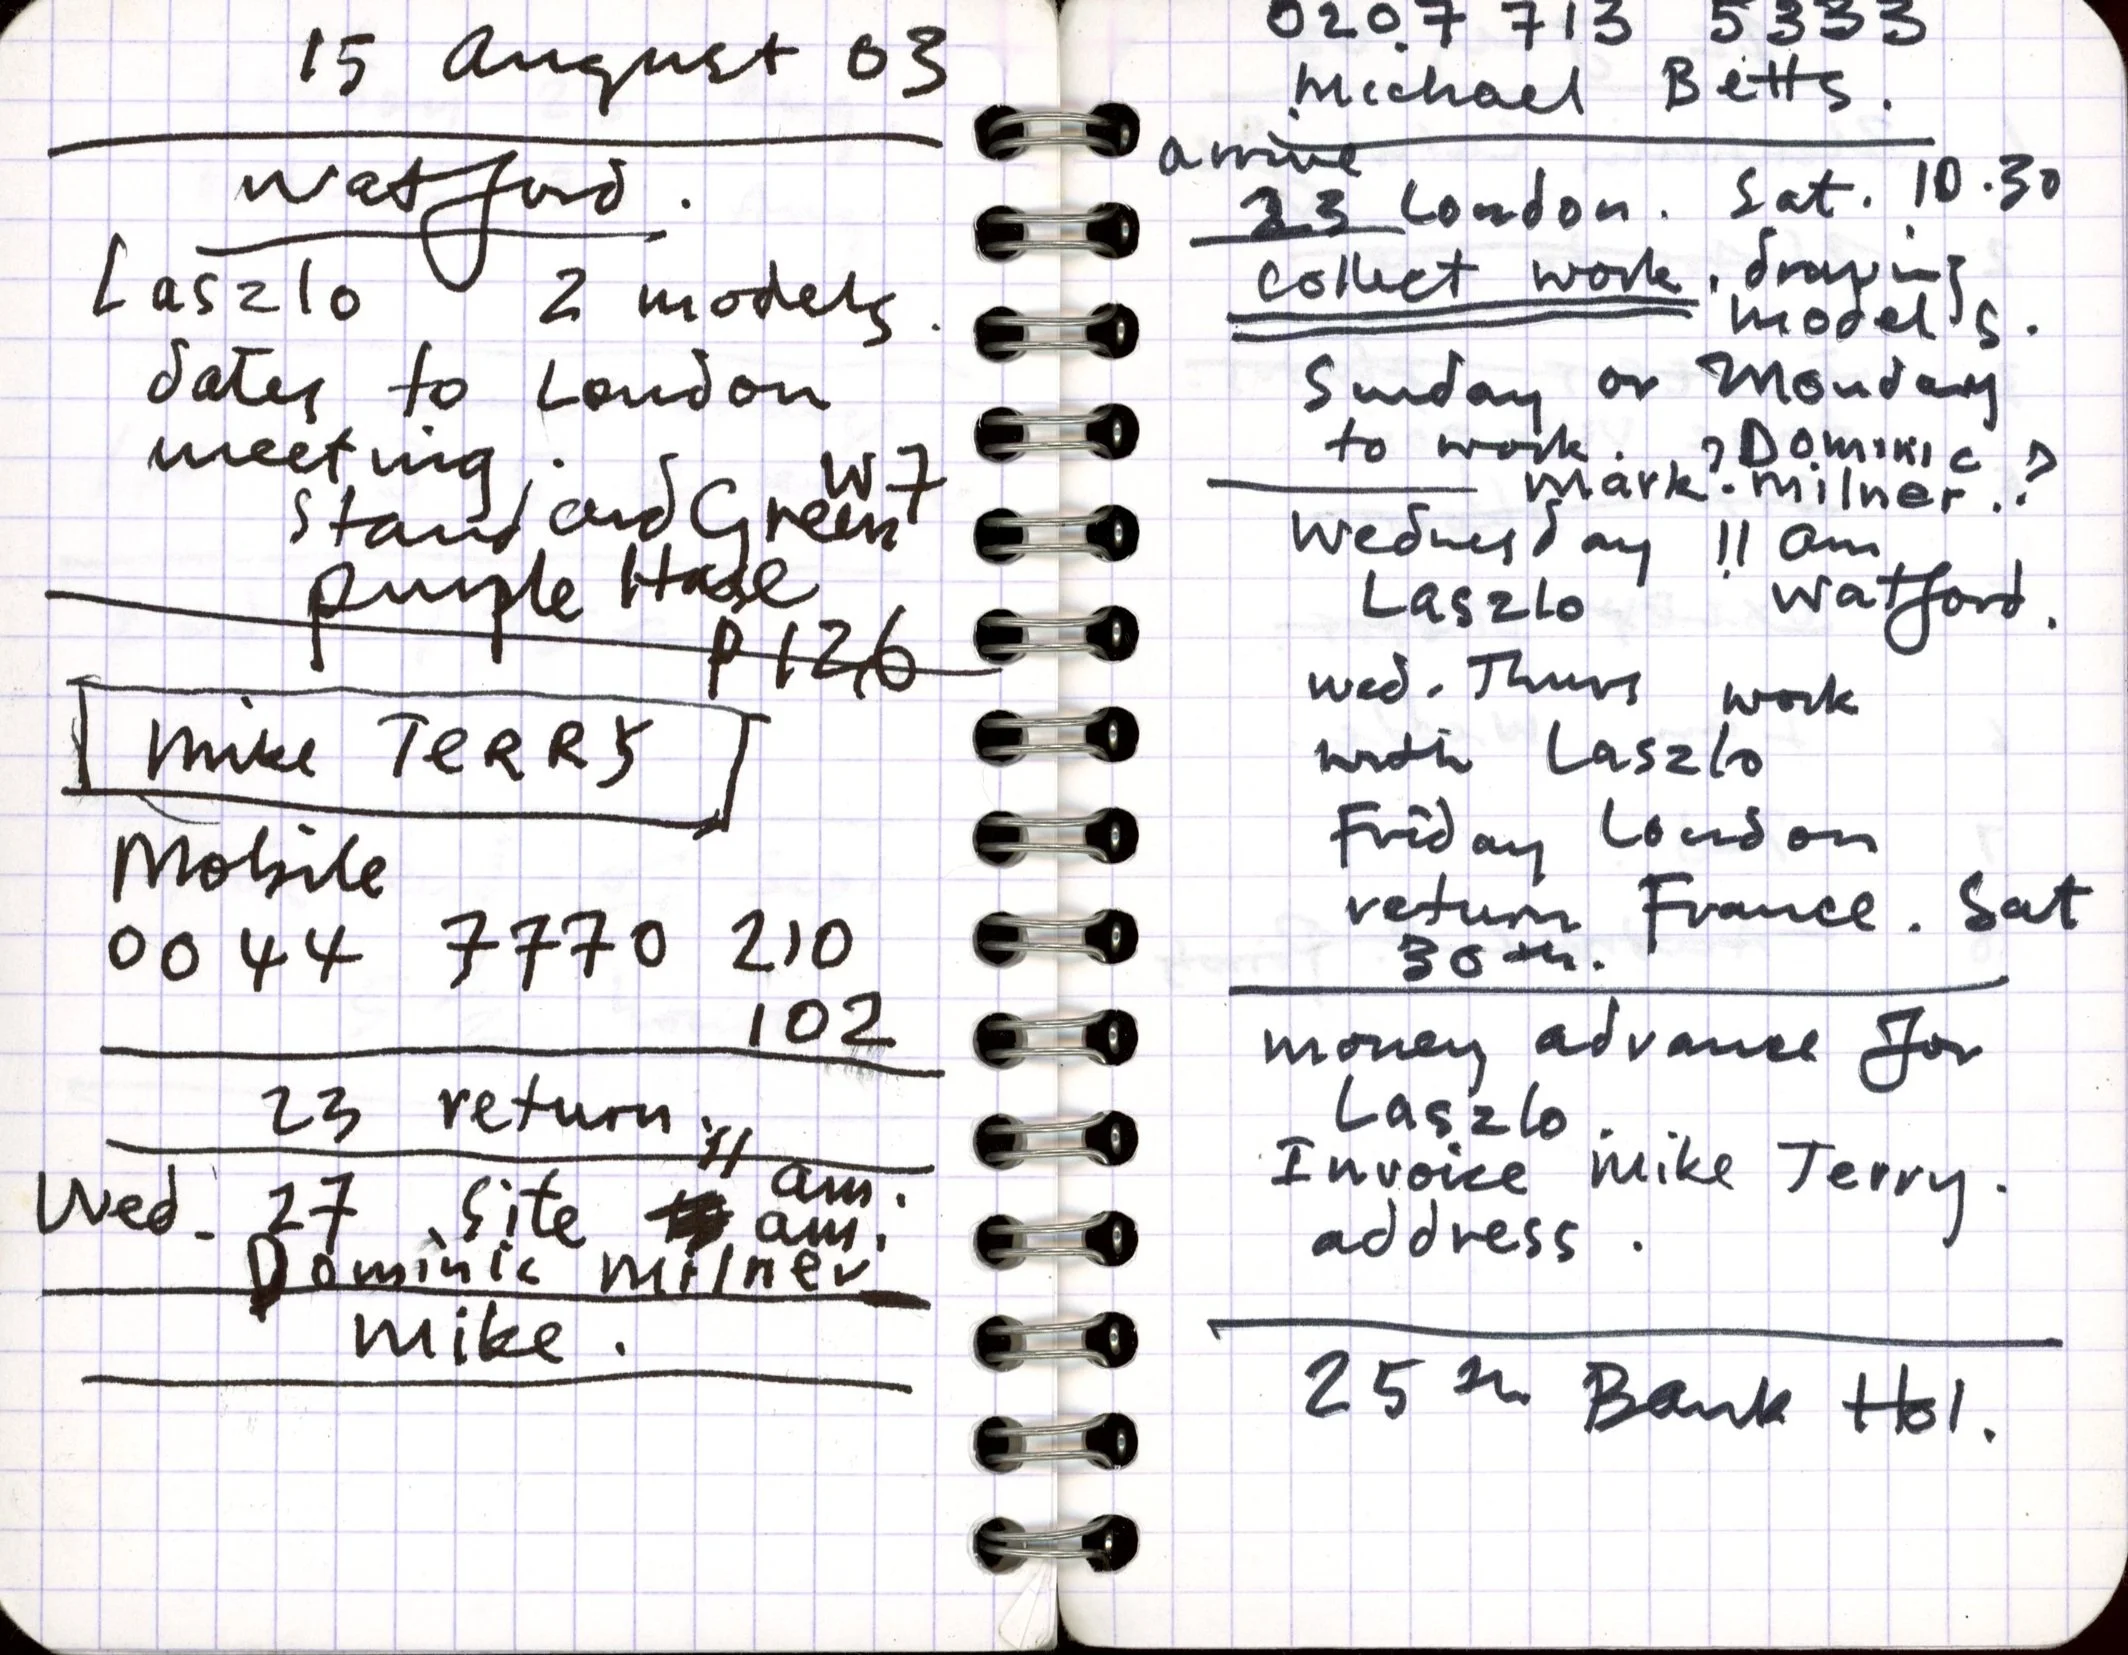 15 August 03
Watford.
Laszlo 2 models.
dates to London
meeting.
W7
Stand and Green
purple Hase
P126
Mike TERRY
Mobile
0044 7770 210
102
23 return.
11 am.
Wed. 27 Site am.
Dominic Milner
Mike.
0207 713 5333
Michael Betts.
arrive
23 London. Sat. 10.30
collect work. drawing
models.
Sunday or Monday
to work. ? Dominic ?
Mark. Milner.
Wednesday 11 am
Laszlo Watford.
wed. Thurs work
with Laszlo
Friday London
return France. Sat
30th.
money advance for
Laszlo.
Invoice Mike Terry.
address.
25th Bank Hol.